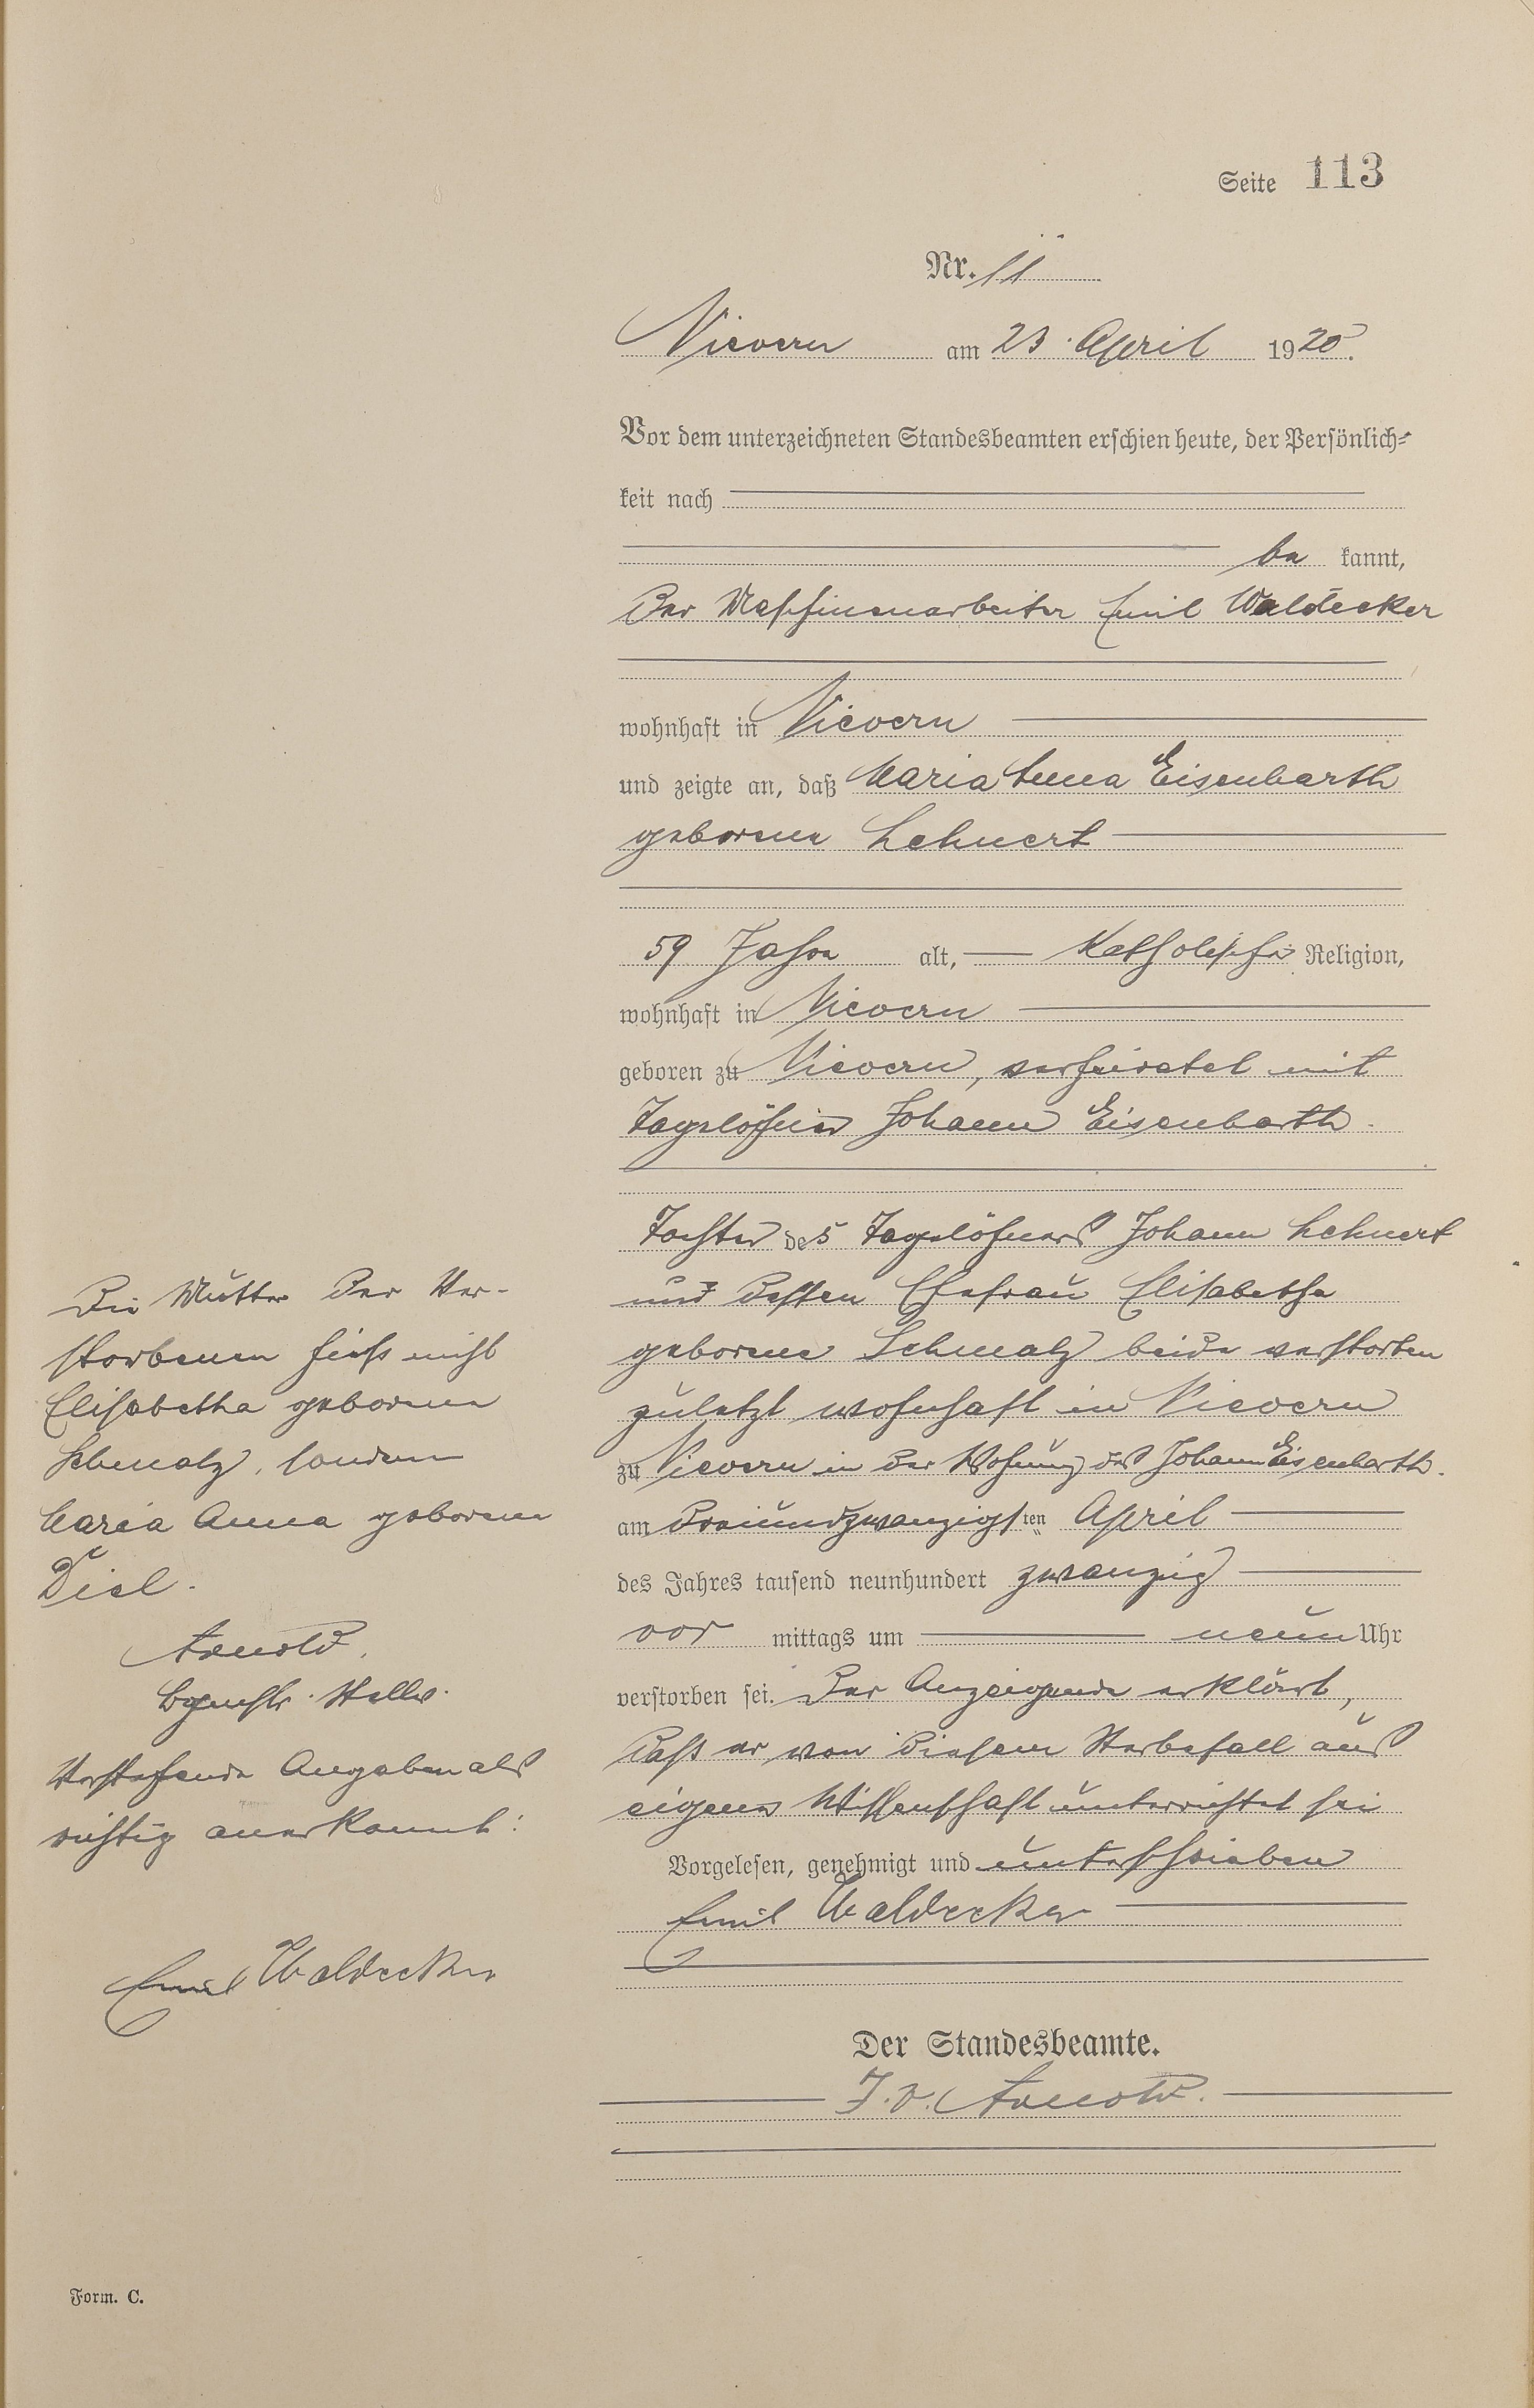 Seite 113
Nr. 11
Nievern am 23. April 1920.
Vor dem unterzeichneten Standesbeamten erschien heute, der Persönlich-
keit nach
be kannt,
der Maschinenarbeiter Emil Waldecker
wohnhaft in Nievern
und zeigte an, daß Maria Anna Eisenbarth
geborene Lehnert
59 Jahre alt, katholischer Religion,
wohnhaft in Nievern
geboren zu Nievern, verheiratet mit
Tagelöhner Johann Eisenbarth.
Tochter des Tagelöhners Johann Lehnert
und dessen Ehefrau Elisabetha
geborene Schmalz beide verstorben
zuletzt wohnhaft in Nievern
zu Nievern in der Wohnung des Johann Eisenbarth.
am dreiundzwanzigsten April
des Jahres tausend neunhundert zwanzig
vor mittags um neun Uhr
verstorben sei. Der Anzeigende erklärt,
daß er von diesem Sterbefall aus
eigener Wissenschaft unterrichtet sei
Vorgelesen, genehmigt und unterschrieben
Emil Waldecker
Der Standesbeamte.
J. V. Arnold.
Die Mutter der Ver-
storbenen hieß nicht
Elisabetha geborene
Schmalz, sondern
Maria Anna geborene
Diel.
Arnold.
Bgmstr. Stellv.
Vorstehende Angaben als
richtig anerkannt:
Emil Waldecker
Form. C.